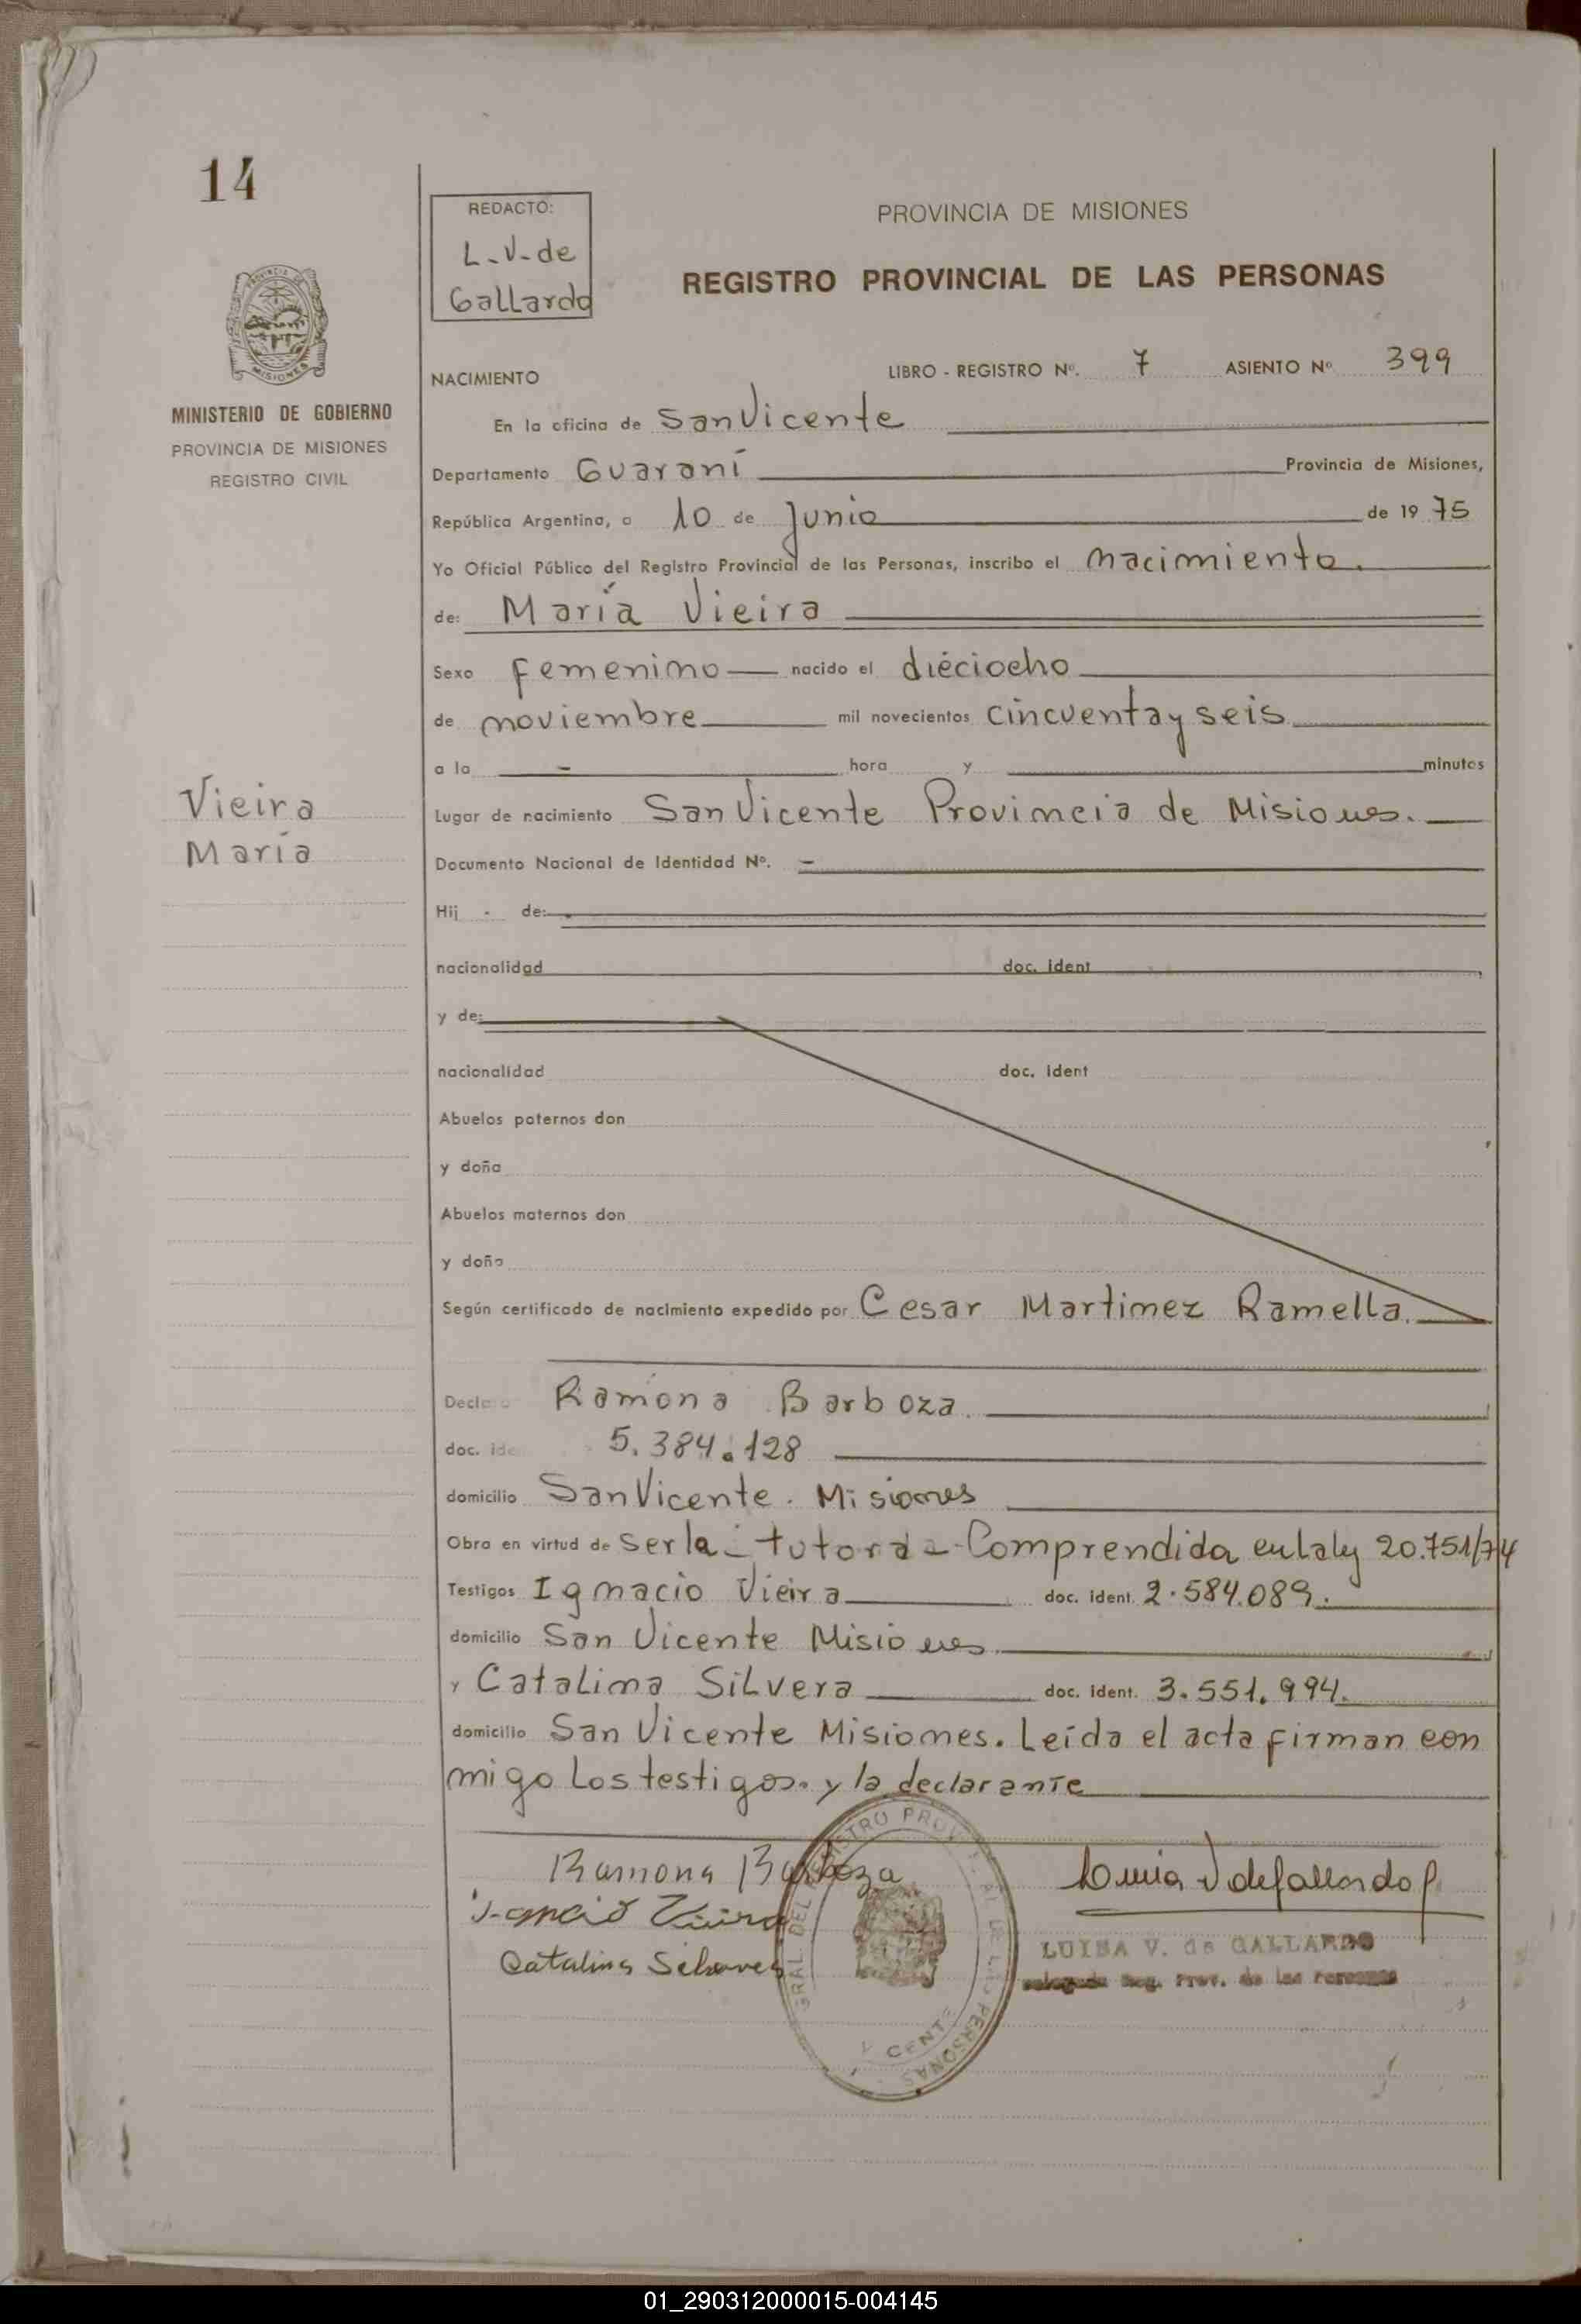 14
REDACTO:
L.V. de
Gallardo
PROVINCIA DE MISIONES
REGISTRO PROVINCIAL DE LAS PERSONAS
MISIONES
MINISTERIO DE GOBIERNO
PROVINCIA DE MISIONES
REGISTRO CIVIL
NACIMIENTO LIBRO - REGISTRO Nº. 7 ASIENTO Nº 399
En la oficina de San Vicente
Departamento Guaraní Provincia de Misiones,
República Argentina, a 10 de Junio de 1975
Yo Oficial Público del Registro Provincial de las Personas, inscribo el nacimiento.
de: María Vieira
Sexo femenino nacido el dieciocho
de noviembre mil novecientos cincuenta y seis
a la - hora y minutos
Vieira
María
Lugar de nacimiento San Vicente Provincia de Misiones.
Documento Nacional de Identidad Nº. -
Hij - de:
nacionalidad doc. ident
y de:
nacionalidad doc. ident
Abuelos paternos don
y doña
Abuelos maternos don
y doña
Según certificado de nacimiento expedido por Cesar Martinez Ramella.
Declara Ramona Barboza
doc. ide 5.384.128
domicilio San Vicente. Misiones
Obra en virtud de ser la - tutora - Comprendida en la ley 20.751/74
Testigos Ignacio Vieira doc. ident. 2.584.089.
domicilio San Vicente Misiones
y Catalina Silvera doc. ident. 3.551.994.
domicilio San Vicente Misiones. Leída el acta firman con
migo los testigos. y la declarante
Ramona Barboza
Catalina
LUISA V. de GALLARDO
Reg. Prov. de las Personas
01_290312000015-004145